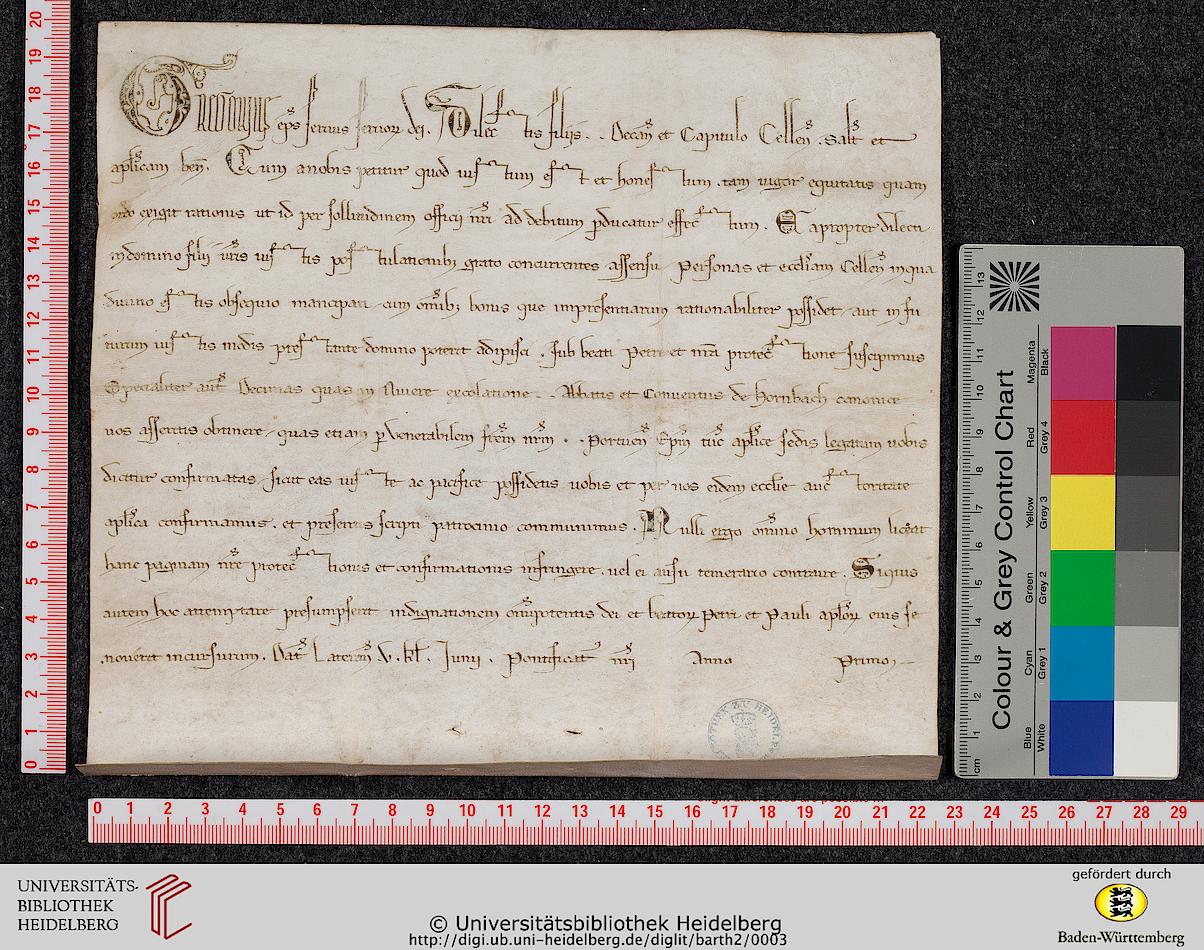 Gregorius ep̄s servus servor̄ dei. Dilectis filiis . . Decan̄ et Capitulo Cellen̄. Salt̄ et
apl̄icam ben̄. Cum a nobis petitur quod iustum est et honestum, tam vigor equitatis quam
ordo exigit rationis ut id per sollicitudinem officij nr̄i ad debitum p̄ducatur effectum. Eapropter dilecti
in domino filij vr̄is iustis postulationib; grato concurrentes assensu personas et eccl̄iam Cellen̄ in qua
divino estis obsequio mancipati cum om̄ib; bonis que impresentiarum rationabiliter possidet, aut in fu
turum iustis modis prestante domino poterit adipisci. sub beati Petri et nr̄a protectione suscipimus
Specialiter aut̄ Decimas quas in . . Abbatis et Conventus de Hornbach canonice
vos asseritis obtinere, quas etiam p̄ venerabilem fr̄em nr̄m . . Portuen̄ Ep̄m tūc apl̄ice sedis legatum vobis
dicitur confirmatas, sicut eas iuste ac pacifice possidetis vobis et per vos eidem ecclie auctoritate
apl̄ica confirmamus. et presentis scripti patrocinio communimus. Nulli ergo om̄ino hominum liceat
hanc paginam nr̄e protectionis et confirmationis infringere. vel ei ausu temerario contraire. Siquis
autem hoc attemptare presumpserit indignationem om̄ipotentis dei et beator̄ Petri et Pauli apl̄or̄ eius se
noverit incursurum. Dat̄ Lateran̄ V. kl̄. Junii. Pontificat̄ nr̄i Anno Primo
0 1 2 3 4 5 6 7 8 9 10 11 12 13 14 15 16 17 18 19 20
0 1 2 3 4 5 6 7 8 9 10 11 12 13 14 15 16 17 18 19 20 21 22 23 24 25 26 27 28 29
Colour & Grey Control Chart
Blue Cyan Green Yellow Red Magenta
White Grey 1 Grey 2 Grey 3 Grey 4 Black
cm 1 2 3 4 5 6 7 8 9 10 11 12 13
UNIVERSITÄTS-
BIBLIOTHEK
HEIDELBERG
© Universitätsbibliothek Heidelberg
http://digi.ub.uni-heidelberg.de/diglit/barth2/0003
gefördert durch
Baden-Württemberg